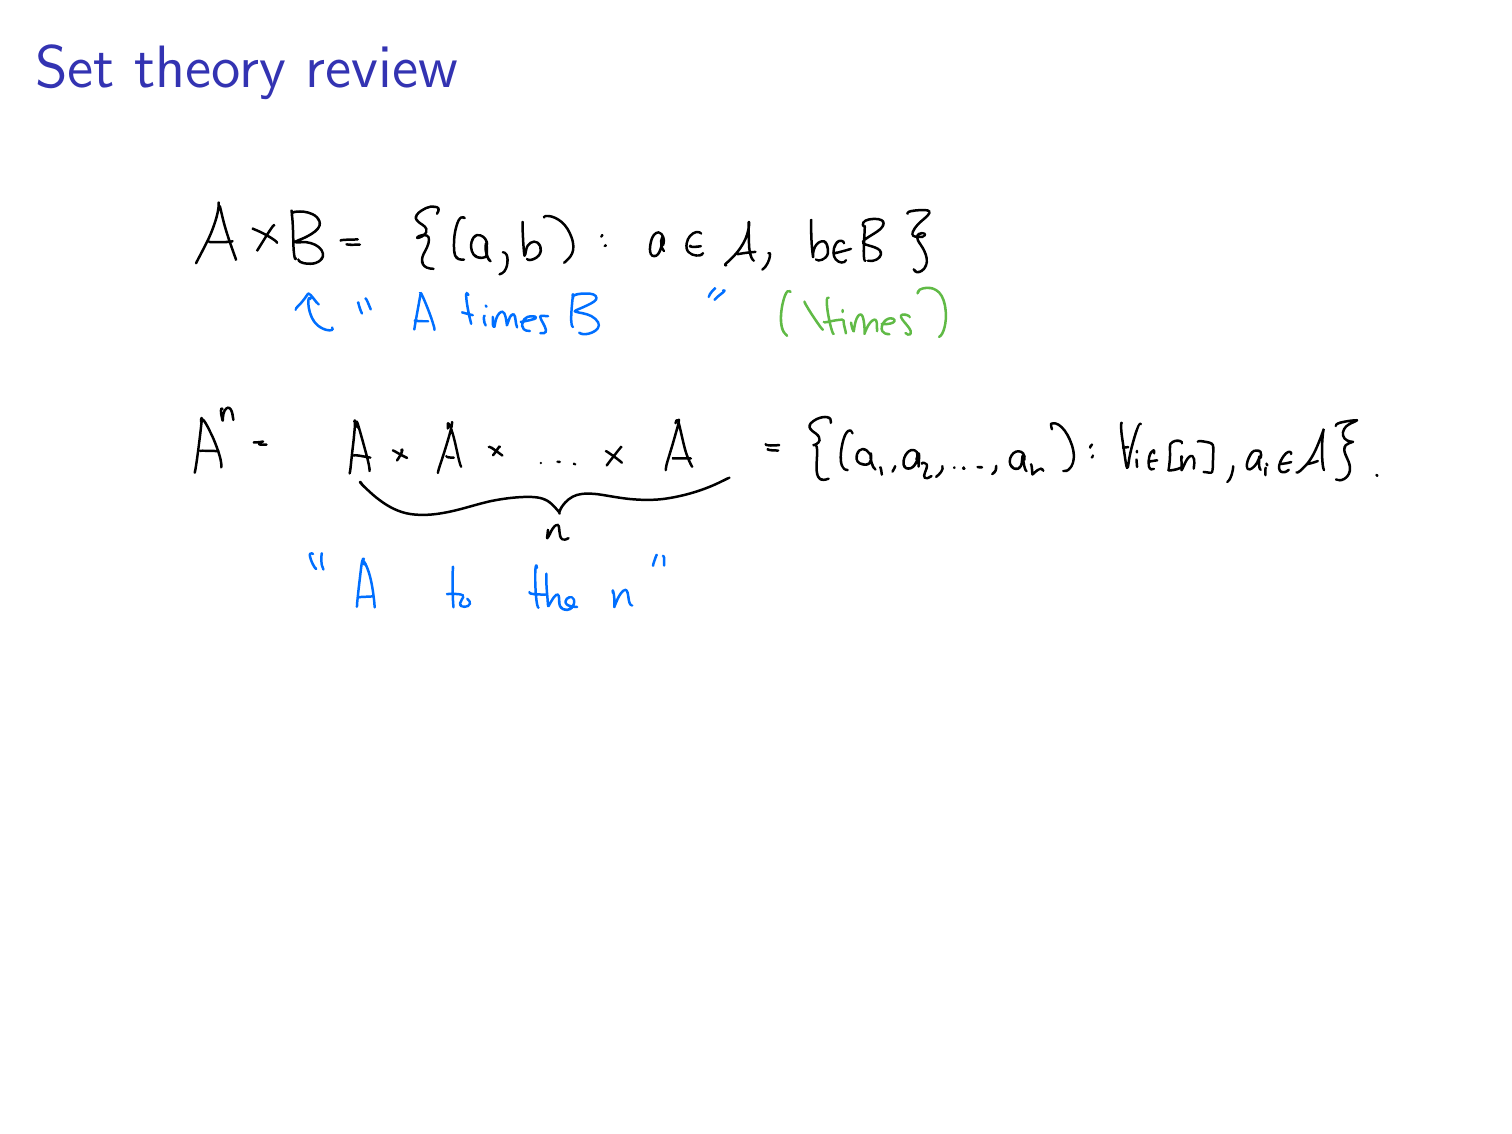 Set theory review
A × B = {(a, b) : a ∈ A, b ∈ B}
↑ " A times B " (\times)
Aⁿ = A × A × ... × A = {(a₁, a₂, ..., aₙ) : ∀i ∈ [n], aᵢ ∈ A}.
n
" A to the n "